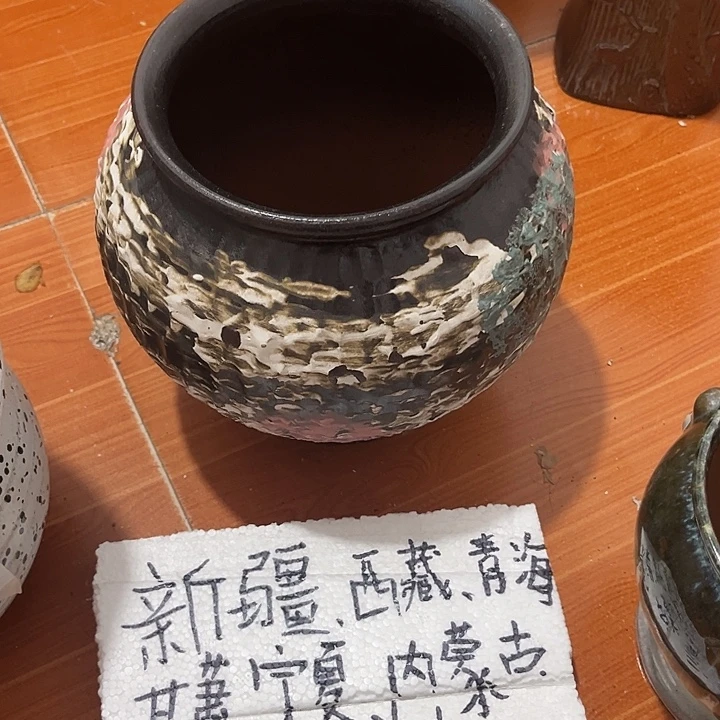 新疆、西藏、青海
甘肃宁夏、内蒙古